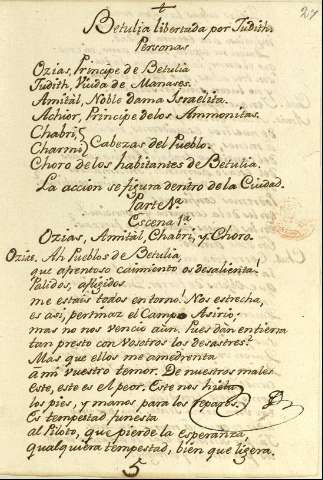 27
Betulia libertada por Judith
Personas
Ozias, Principe de Betulia
Judith, Viuda de Manases.
Amital, Noble dama Israelita.
Achior, Principe de los Ammonitas.
Chabri,
Charmi Cabezas del Pueblo.
Choro de los habitantes de Betulia.
La accion se figura dentro de la Ciudad.
Parte
Escena 1ª
Ozias, Amital, Chabri, y Choro.
Ozias. Ah Pueblos de Betulia,
que afrentoso caimiento os desalienta!
Palidos, afligidos
me estais todos en torno! Nos estrecha,
es asi, pertinaz el Campo Asirio;
mas no nos vencio aun. Pues dan en tierra
tan presto con vosotros los desastres?
Más que ellos me amedrenta
á mi vuestro temor. De nuestros males
este, este es el peor. Este nos hiela
los pies, y manos para los reparos.
Es tempestad funesta
al Piloto, que pierde la esperanza,
qualquiera tempestad, bien que ligera.
5